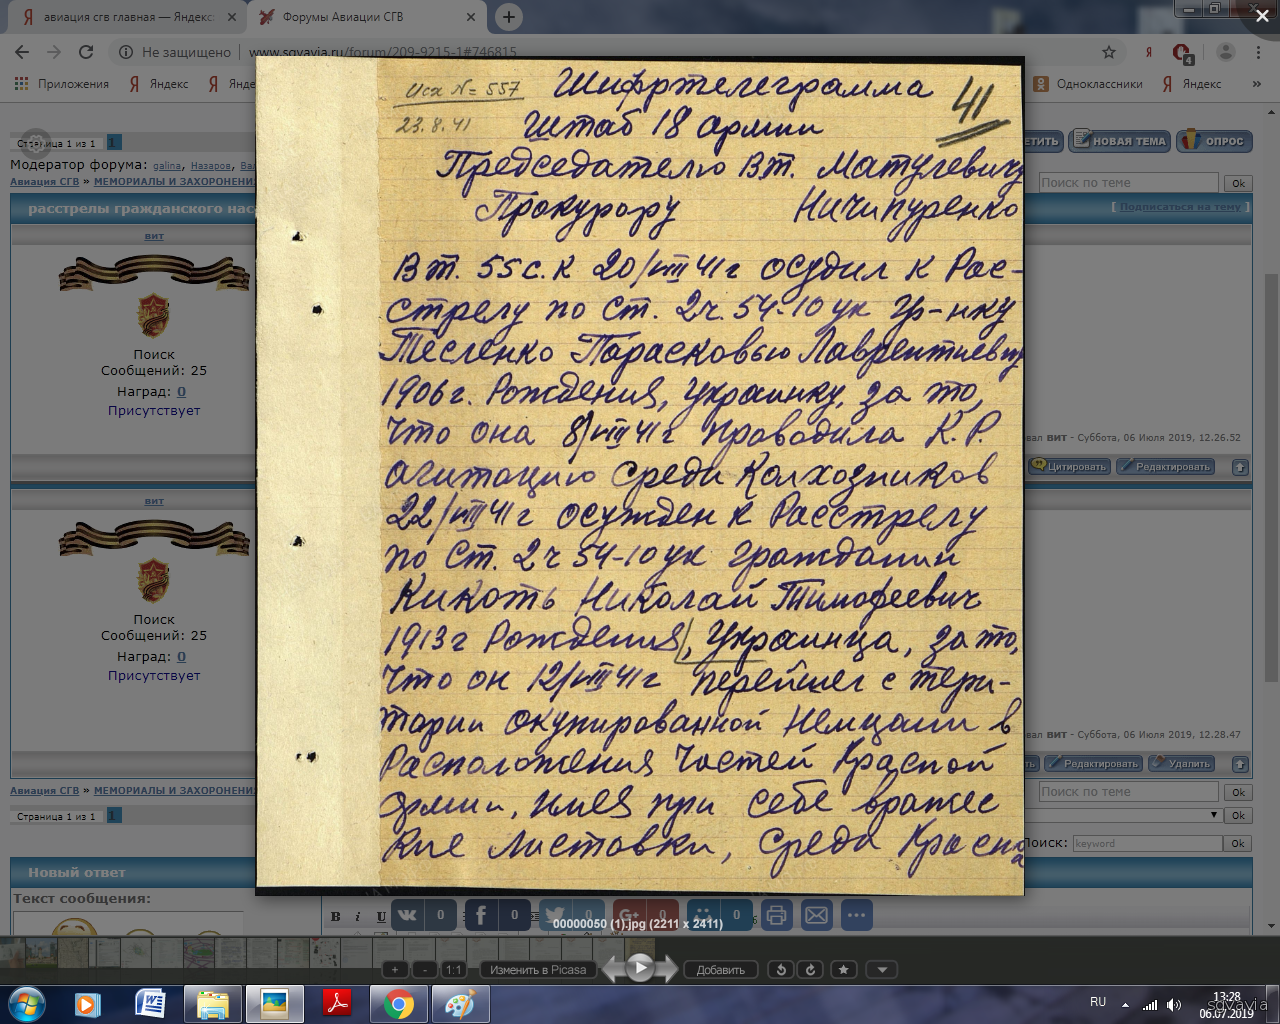 авиация сгв главная — Яндекс
Форумы Авиации СГВ
Не защищено
www.sgvavia.ru/forum/209-9215-1#746815
4
Приложения
Яндекс
Яндe
Одноклассники
Яндекс
Страница 1 из 1 1
ЕТИТЬ
НОВАЯ ТЕМА
ОПРОС
Модератор форума: galina, Назаров, Ва
Авиация СГВ » МЕМОРИАЛЫ И ЗАХОРОНЕНИ
Поиск по теме
Ok
расстрелы гражданского нас
[ Подписаться на тему ]
вит
Поиск
Сообщений: 25
Наград: 0
Присутствует
овал вит - Суббота, 06 Июля 2019, 12.26.52
Цитировать
Редактировать
вит
Поиск
Сообщений: 25
Наград: 0
Присутствует
овал вит - Суббота, 06 Июля 2019, 12.28.47
Редактировать
Удалить
Авиация СГВ » МЕМОРИАЛЫ И ЗАХОРОНЕНИ
Поиск по теме
Ok
Страница 1 из 1 1
Ok
Поиск:
keyword
Ok
Новый ответ
Текст сообщения:
B i U
Исх № = 557
23.8.41
41
Шифртелеграмма
Штаб 18 армии
Председателю В.т. Матулевичу
Прокурору Ничипуренко
В т. 55 с. к 20/VIII 41 г осудил к Рас-
стрелу по Ст. 2 ч. 54-10 ук гр-нку
Тесленко Парасковью Лаврентиевну
1906 г. Рождения, украинку, за то,
что она 8/VIII 41 г проводила К.Р.
агитацию среди Колхозников
22/VIII 41 г осужден к Расстрелу
по Ст. 2 ч 54-10 ук гражданин
Кикоть Николай Тимофеевич
1913 г Рождения, Украинца, за то,
что он 12/VIII 41 г перейшел с тери-
тарии окупированной Немцами в
Расположения Частей Красной
армии, имея при себе вражес
кие листовки, среди Красна
0
0
0
0
0
00000050 (1).jpg (2211 x 2411)
+
-
1:1
Изменить в Picasa
Добавить
RU
13:28
06.07.2019
sgvavia